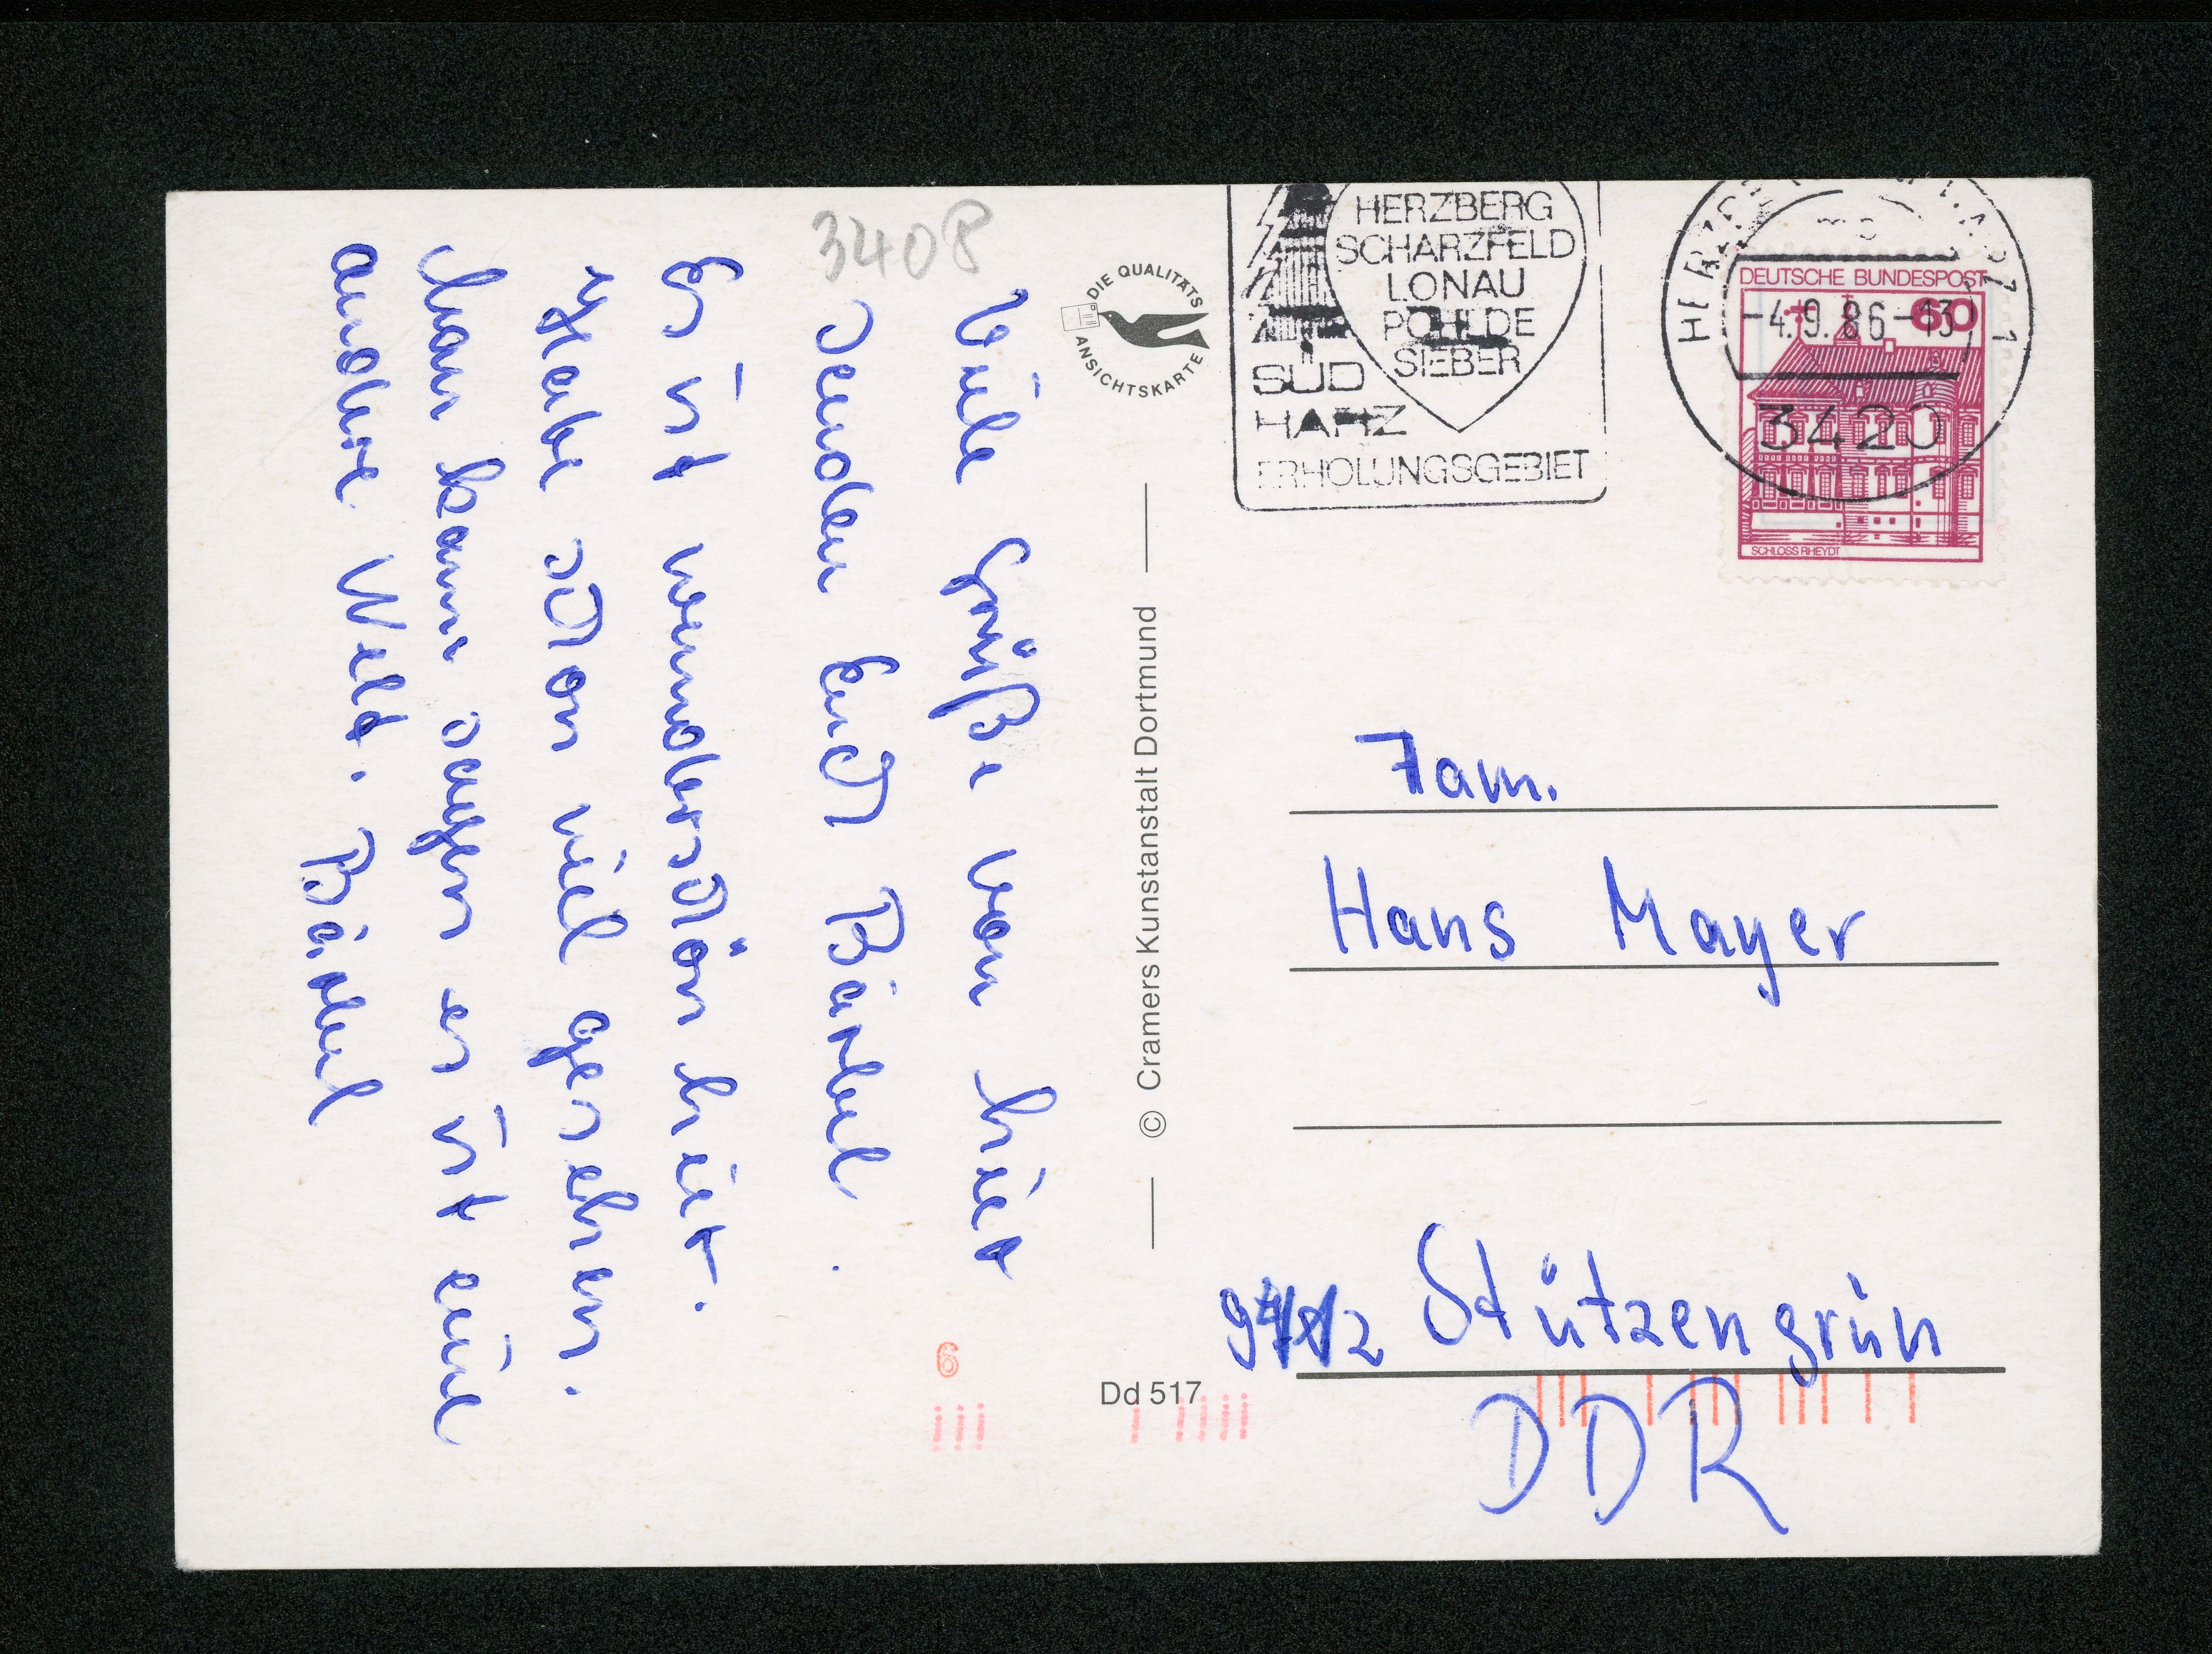 3408
Viele Grüße von hier
senden Euch Bärbel.
Es ist wunderschön hier.
Habe schon viel gesehen.
Man kann sagen es ist eine
andere Welt. Bärbel
DIE QUALITÄTS
ANSICHTSKARTE
© Cramers Kunstanstalt Dortmund
Dd 517
6
HERZBERG
SCHARZFELD
LONAU
PÖHLDE
SIEBER
SÜD
HARZ
ERHOLUNGSGEBIET
DEUTSCHE BUNDESPOST
60
-4.9.86-13
3420
SCHLOSS RHEYDT
Fam.
Hans Mayer
Stützengrün
DDR